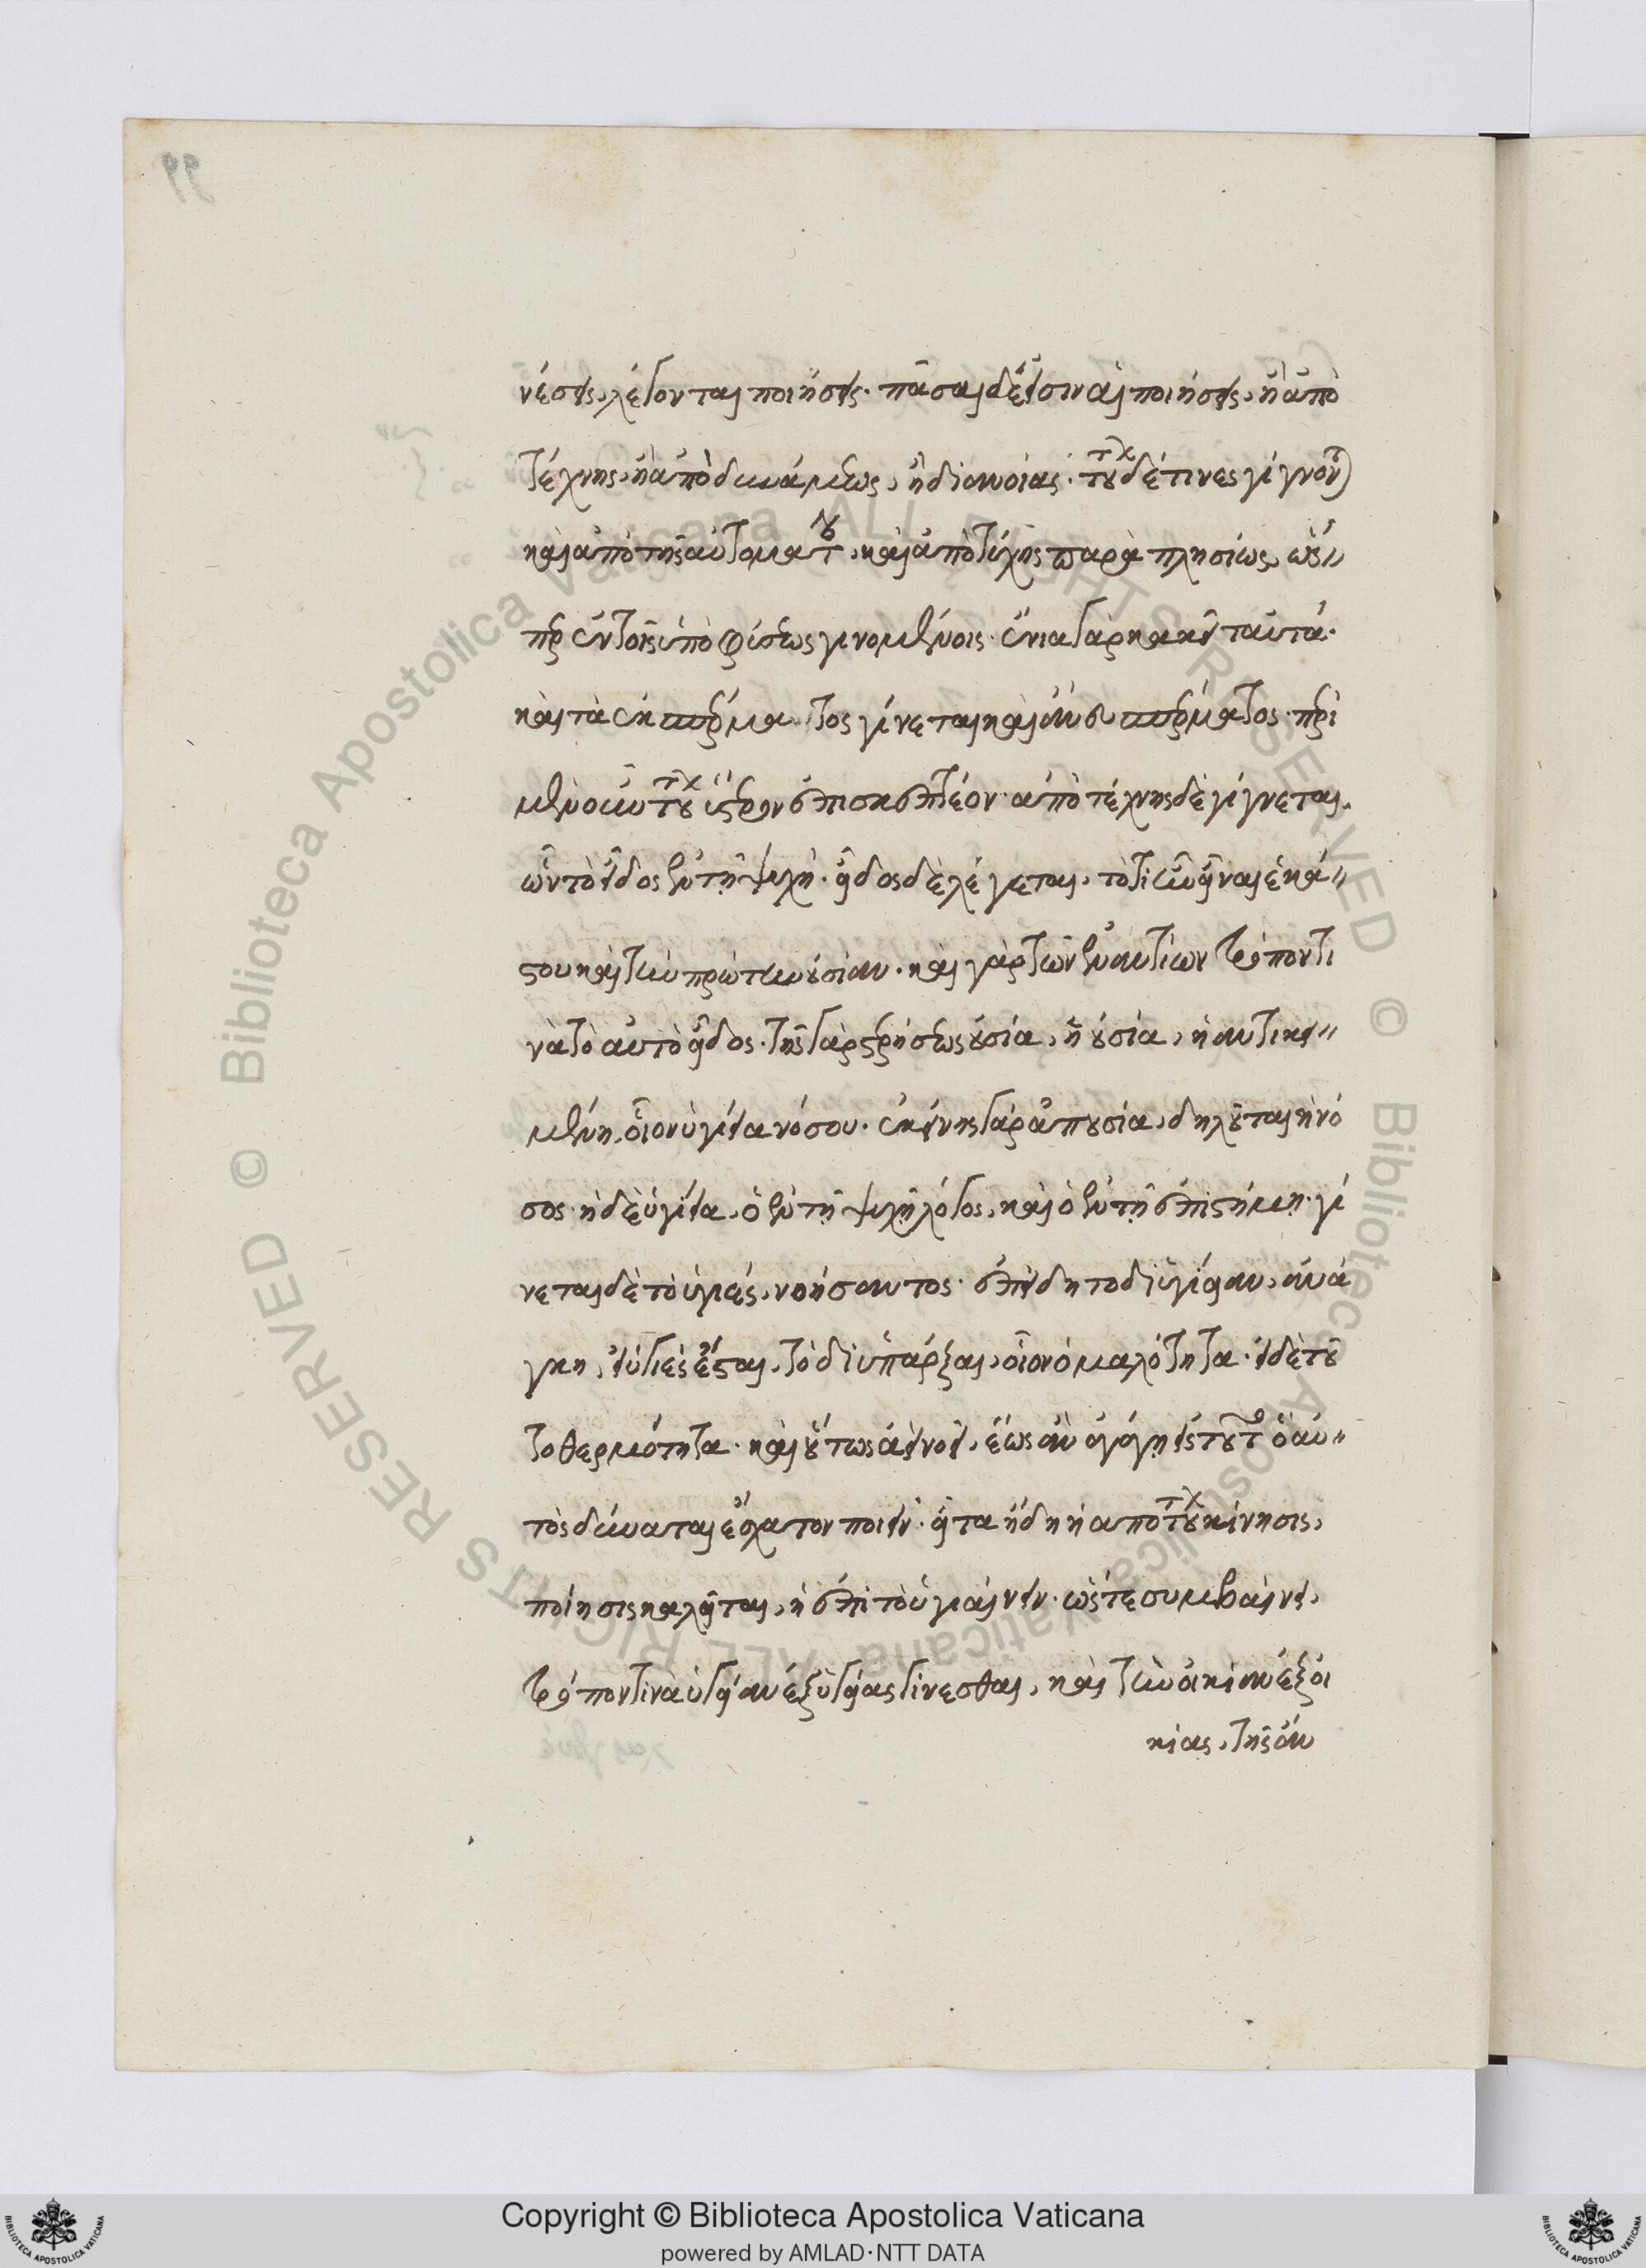 νέσεις, λέγονται ποιήσεις· πᾶσαι δέ εἰσιν αἱ ποιήσεις, ἢ ἀπὸ
τέχνης, ἢ ἀπὸ δυνάμεως, ἢ διανοίας· τούτων δέ τινες γίγνονται
καὶ ἀπὸ τῆς αὐτομάτου, καὶ ἀπὸ τύχης παρὰ πλησίως, ὥσ〃
περ ἐν τοῖς ὑπὸ φύσεως γινομένοις· ἔνια γὰρ κἀκεῖ ταὐτά·
καὶ τὰ ἐκ σπέρματος γίνεται καὶ ἄνευ σπέρματος· περὶ
μὲν οὖν τούτων ὕστερον ἐπισκεπτέον· ἀπὸ τέχνης δὲ γίγνεται,
ὧν τὸ εἶδος ἐν τῇ ψυχῇ· εἶδος δὲ λέγεται, τὸ τί ἦν εἶναι ἑκά〃
στου καὶ τὴν πρώτην οὐσίαν· καὶ γὰρ τῶν ἐναντίων τρόπον τι
νὰ τὸ αὐτὸ εἶδος· τῆς γὰρ στερήσεως οὐσία, ἡ οὐσία, ἡ ἀντικει〃
μένη, οἷον ὑγίεια νόσου· ἐκείνης γὰρ ἀπουσία, δηλοῦται ἡ νό
σος· ἡ δὲ ὑγίεια, ὁ ἐν τῇ ψυχῇ λόγος, καὶ ὁ ἐν τῇ ἐπιστήμῃ· γί
νεται δὲ τὸ ὑγιές, νοήσαντος· ἐπειδὴ τοδὶ ὑγίειαν, ἀνά
γκη, εἰ ὑγιὲς ἔσται, τὸ δὶ ὑπάρξαι, οἷον ὁμαλότητα· εἰ δὲ τοῦ
το θερμότητα· καὶ οὕτως ἀεὶ νοεῖ, ἕως ἂν ἀγάγῃ εἰς τοῦτο ὃ αὐ〃
τὸς δύναται ἔσχατον ποιεῖν· εἶτα ἤδη ἡ ἀπὸ τούτου κίνησις,
ποίησις καλεῖται, ἡ ἐπὶ τὸ ὑγιαίνειν· ὥστε συμβαίνει,
τρόπον τινὰ ὑγίειαν ἐξ ὑγιείας γίνεσθαι, καὶ τὴν οἰκίαν ἐξ οἰ
κίας, τῆς ἄν